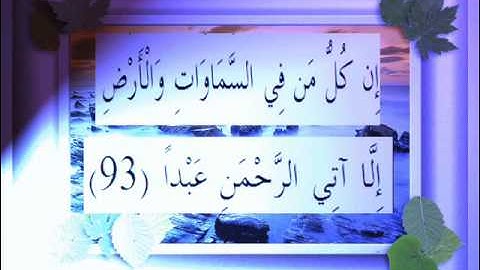 إِن كُلُّ مَن فِي السَّمَاوَاتِ وَالْأَرْضِ
إِلَّا آتِي الرَّحْمَنِ عَبْداً (93)